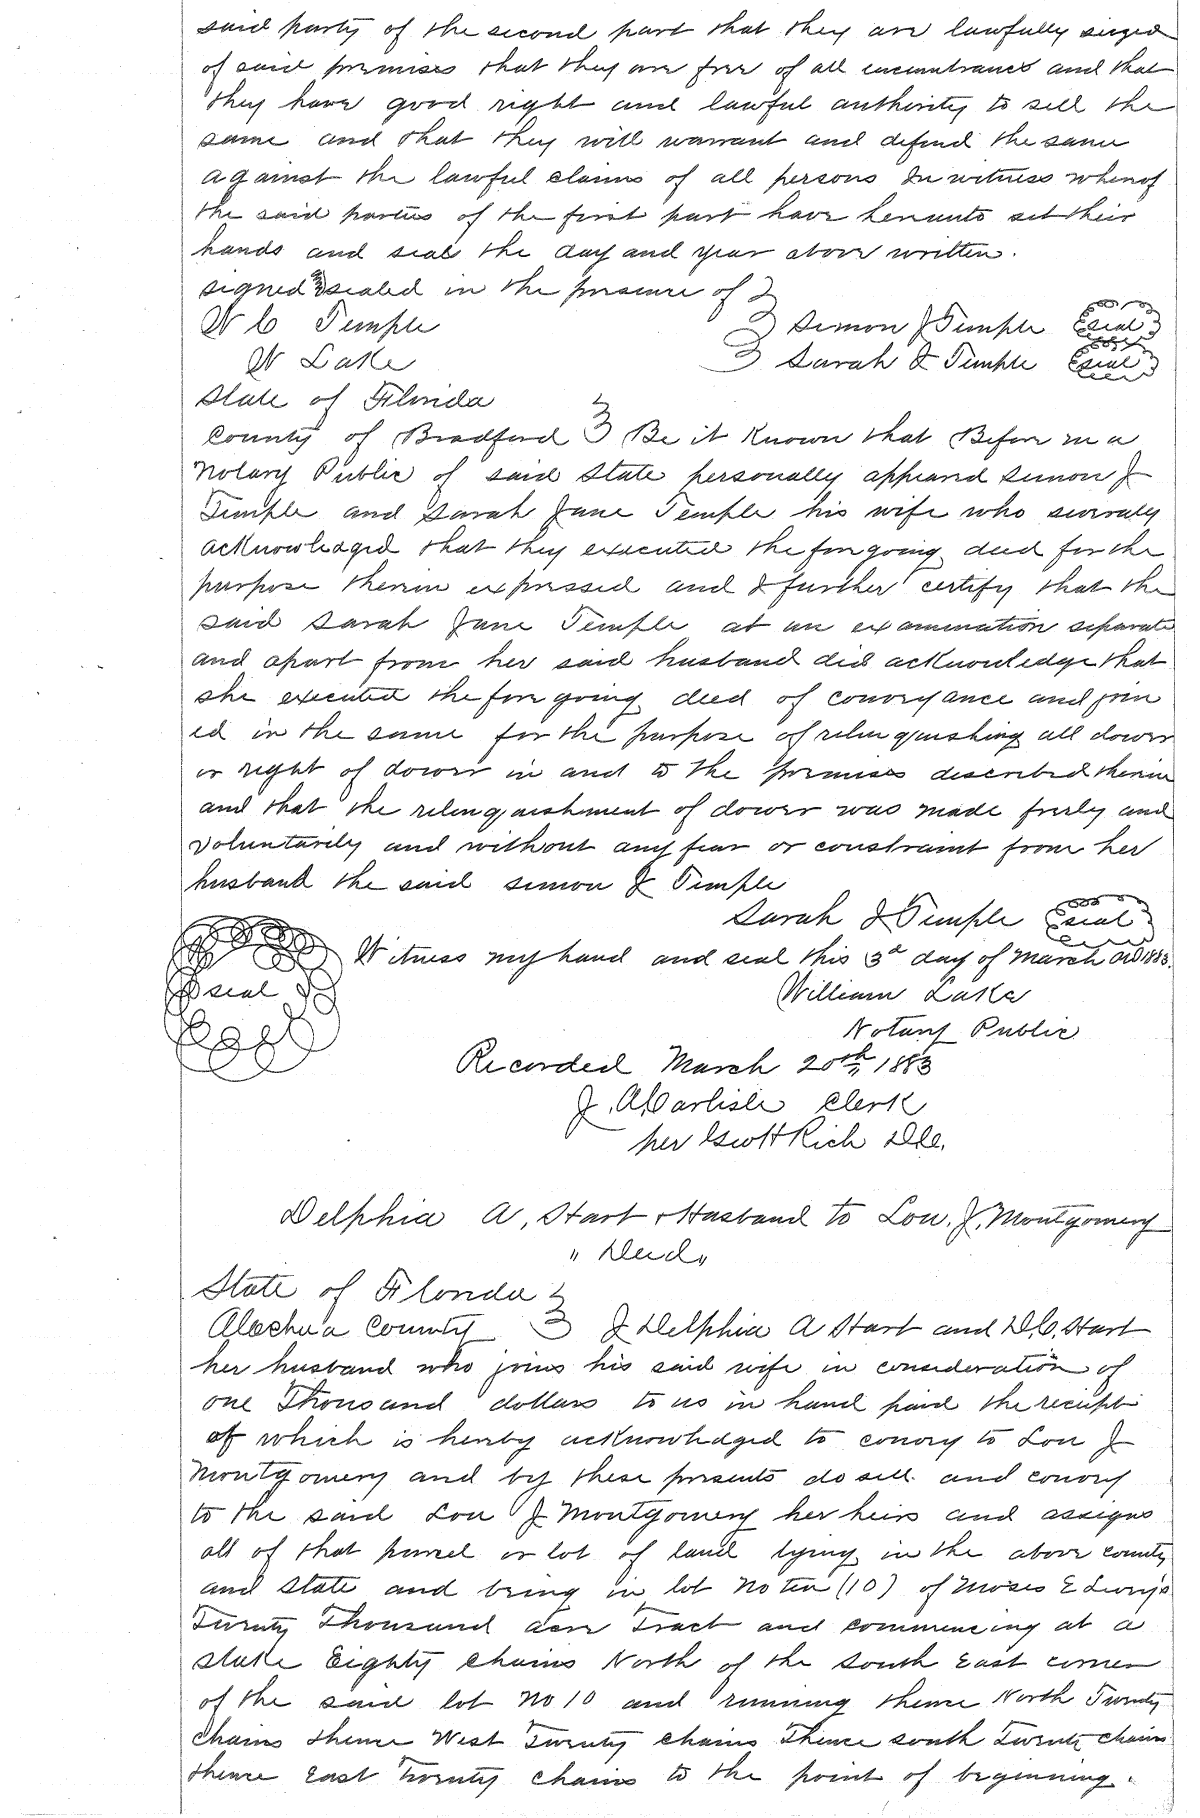 said party of the second part that they are lawfully siezed
of said premises that they are free of all incumbrances and that
they have good right and lawful authority to sell the
same and that they will warrant and defend the same
against the lawful claims of all persons In witness whereof
the said parties of the first part have hereunto set their
hands and seals the day and year above written.
signed & sealed in the presence of
W C Temple Simon J Temple seal
W Lake Sarah J Temple seal
State of Florida
County of Bradford Be it Known that Before me a
Notary Public of said State personally appeared Simon J
Temple and Sarah Jane Temple his wife who severaly
acknowledged that they executed the foregoing deed for the
purpose therein expressed and I further certify that the
said Sarah Jane Temple at an examination separate
and apart from her said husband did acknowledge that
she executed the foregoing deed of conveyance and join
ed in the same for the purpose of relinquishing all dower
or right of dower in and to the premises described therein
and that the relinquishment of dower was made freely and
voluntarily and without any fear or constraint from her
husband the said Simon J Temple
Sarah J Temple seal
Witness my hand and seal this 3d day of March AD 1883.
seal William Lake
Notary Public
Recorded March 20th 1883
J. A. Carlisle Clerk
per Scott Rich D.C.
Delphia A. Hart & Husband to Lou. J. Montgomery
" Deed "
State of Florida
Alachua County I Delphia A Hart and D.C. Hart
her husband who joins his said wife in consideration of
one Thousand dollars to us in hand paid the receipt
of which is hereby acknowledged to convey to Lou J
Montgomery and by these presents do sell and convey
to the said Lou J Montgomery her heirs and assigns
all of that parcel or lot of land lying in the above county
and State and being in lot No ten (10) of Moses E Levy's
Twenty Thousand acre Tract and commencing at a
stake Eighty chains North of the South East corner
of the said lot No 10 and running thence North Twenty
chains thence West Twenty chains Thence south Twenty chains
thence East Twenty chains to the point of beginning.